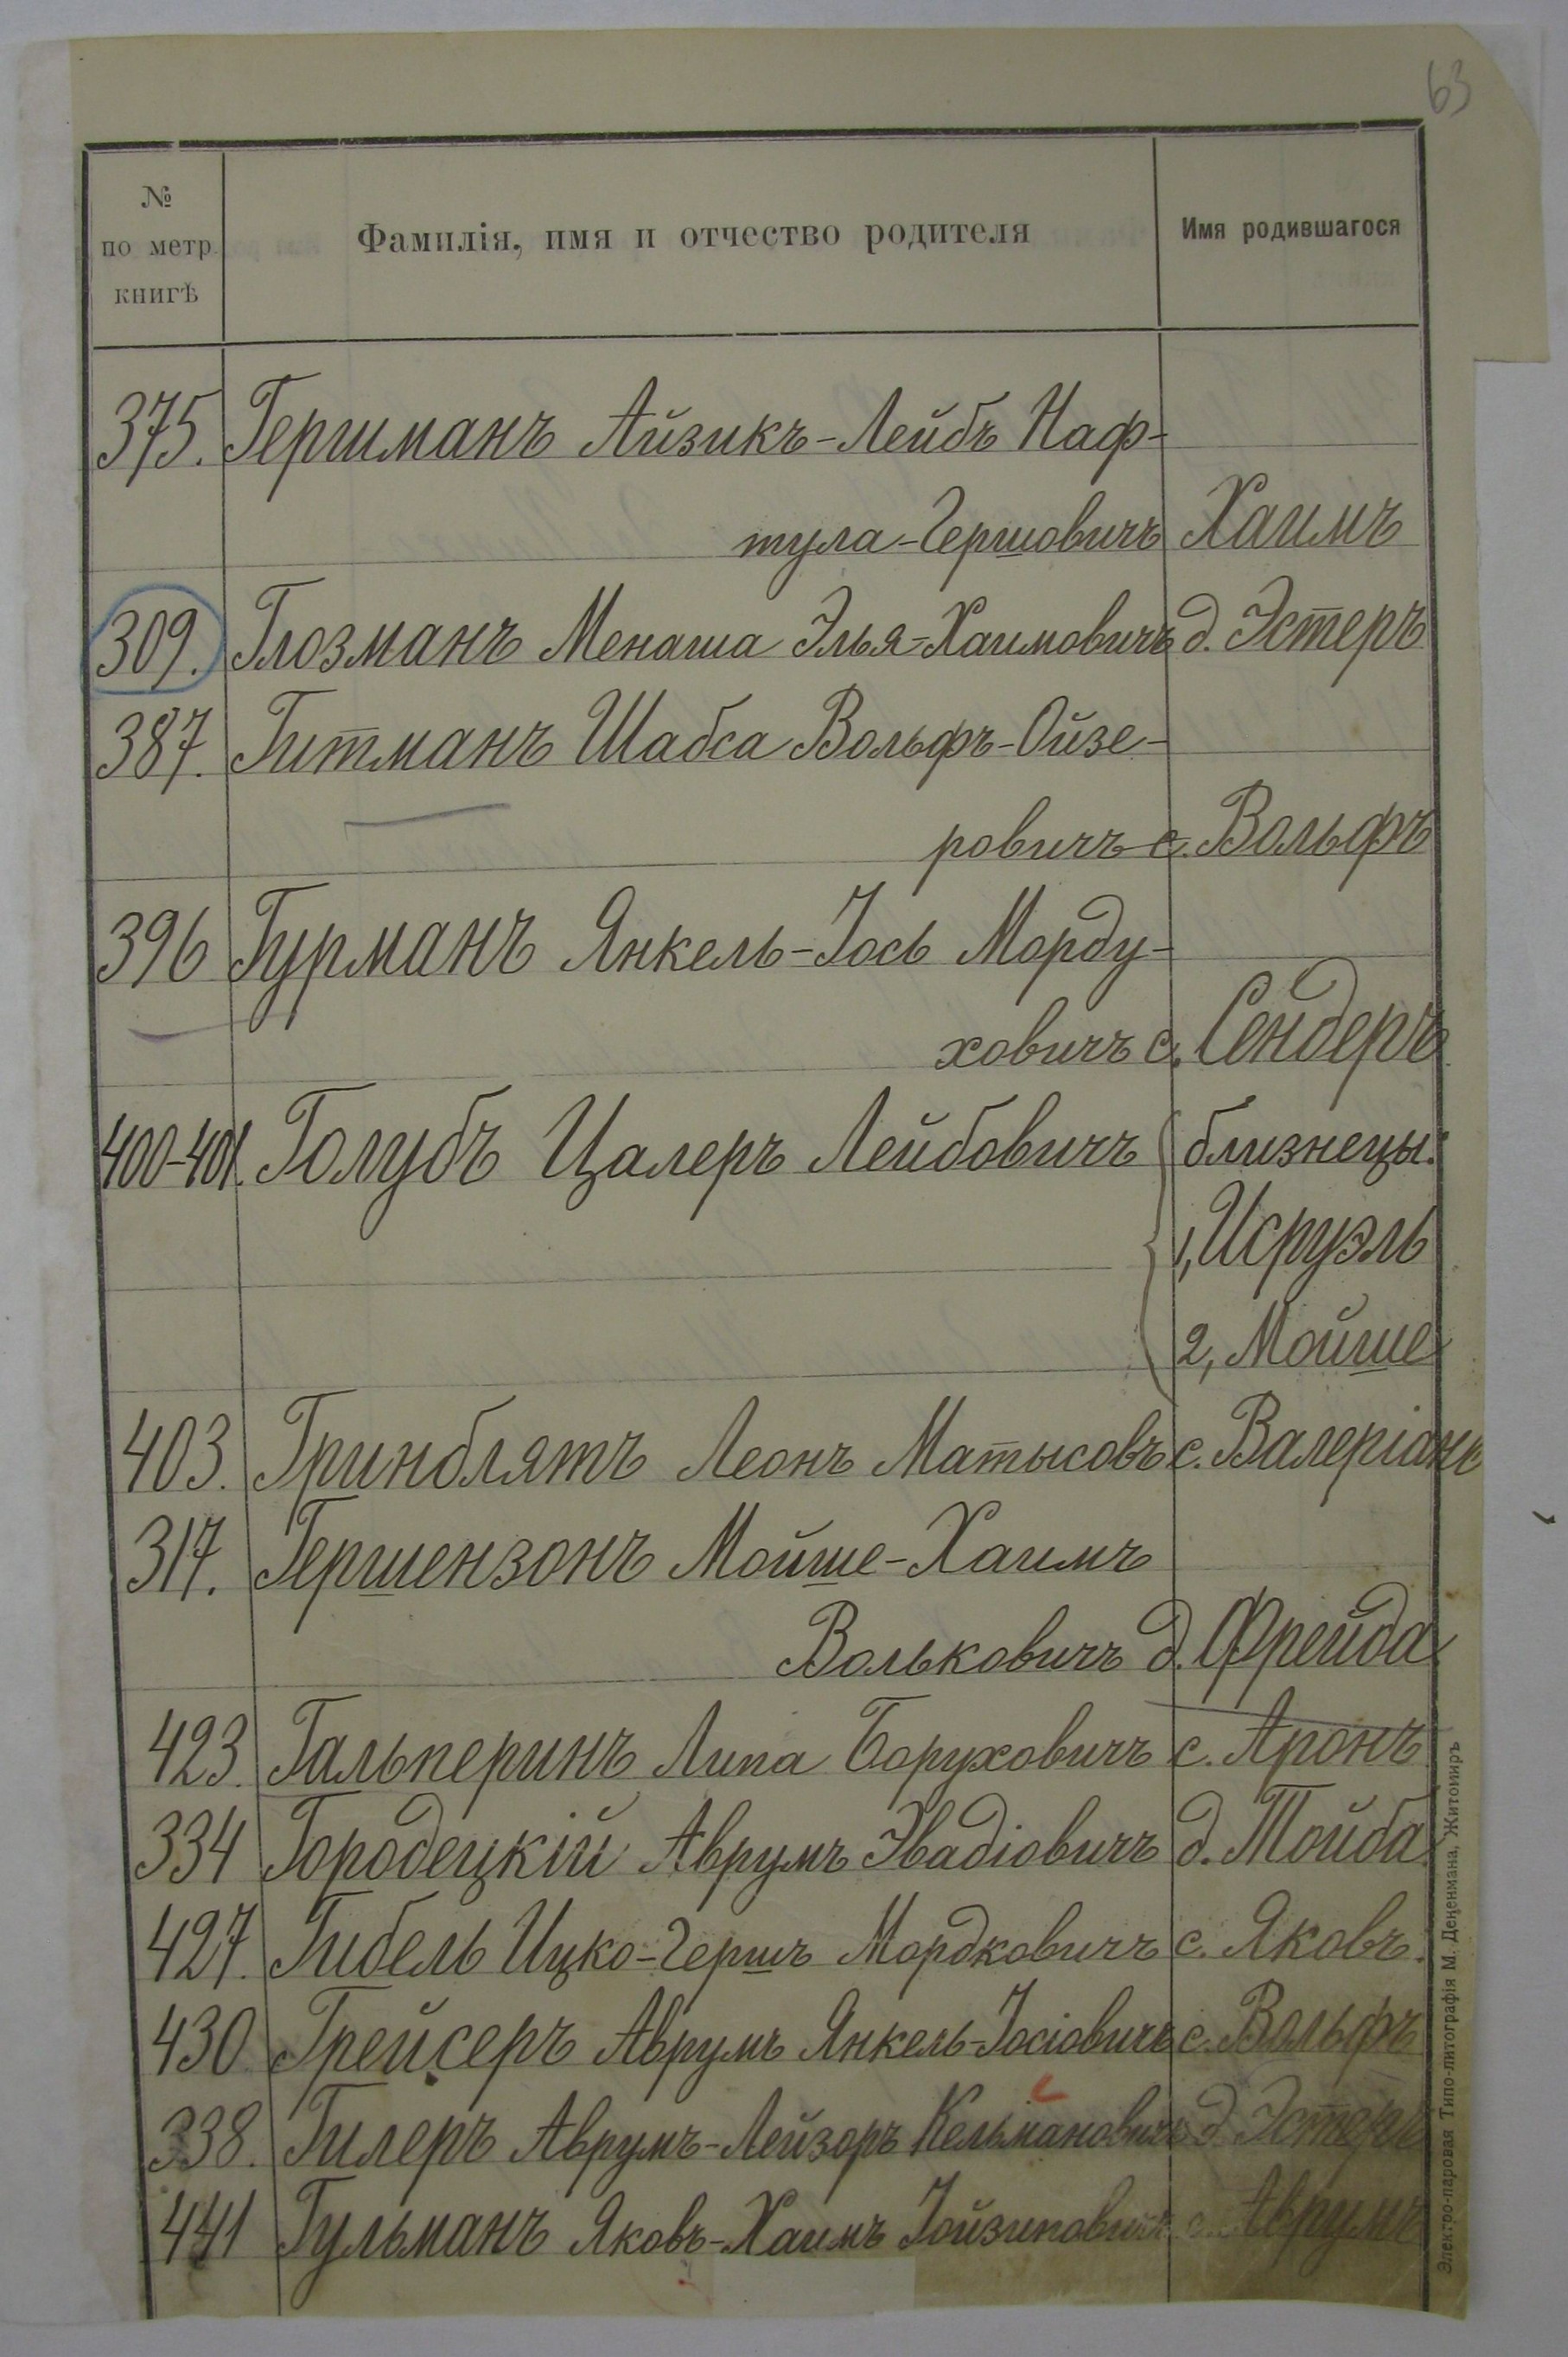 63
№ по метр. книгѣ
Фамилія, имя и отчество родителя
Имя родившагося
375. Гершманъ Айзикъ-Лейбъ Наф-
тула-Гершовичъ Хаимъ
309. Глозманъ Менаша Элья-Хаимовичъ д. Эстеръ
387. Гитманъ Шабса Вольфъ-Ойзе-
ровичъ с. Вольфъ
396 Гурманъ Янкель-Іось Морду-
ховичъ с. Сендеръ
400-401. Голубъ Цалеръ Лейбовичъ близнецы:
1, Исруэль
2, Мойше
403. Гринблятъ Леонъ Матысовъ с. Валеріанъ
317. Гершензонъ Мойше-Хаимъ
Вольковичъ д. Фрейда
423. Гальперинъ Липа Боруховичъ с. Аронъ
334 Городецкій Аврумъ Эвадіовичъ д. Тойба
427. Гибель Ицко-Гершъ Мордковичъ с. Яковъ.
430 Грейсеръ Аврумъ Янкель-Іосіовичъ с. Вольфъ
338. Гилеръ Аврумъ-Лейзоръ Кельмановичъ д. Эстеръ
441 Гульманъ Яковъ-Хаимъ с. Аврумъ
Электро-паровая Типо-литографія М. Дененмана, Житомиръ